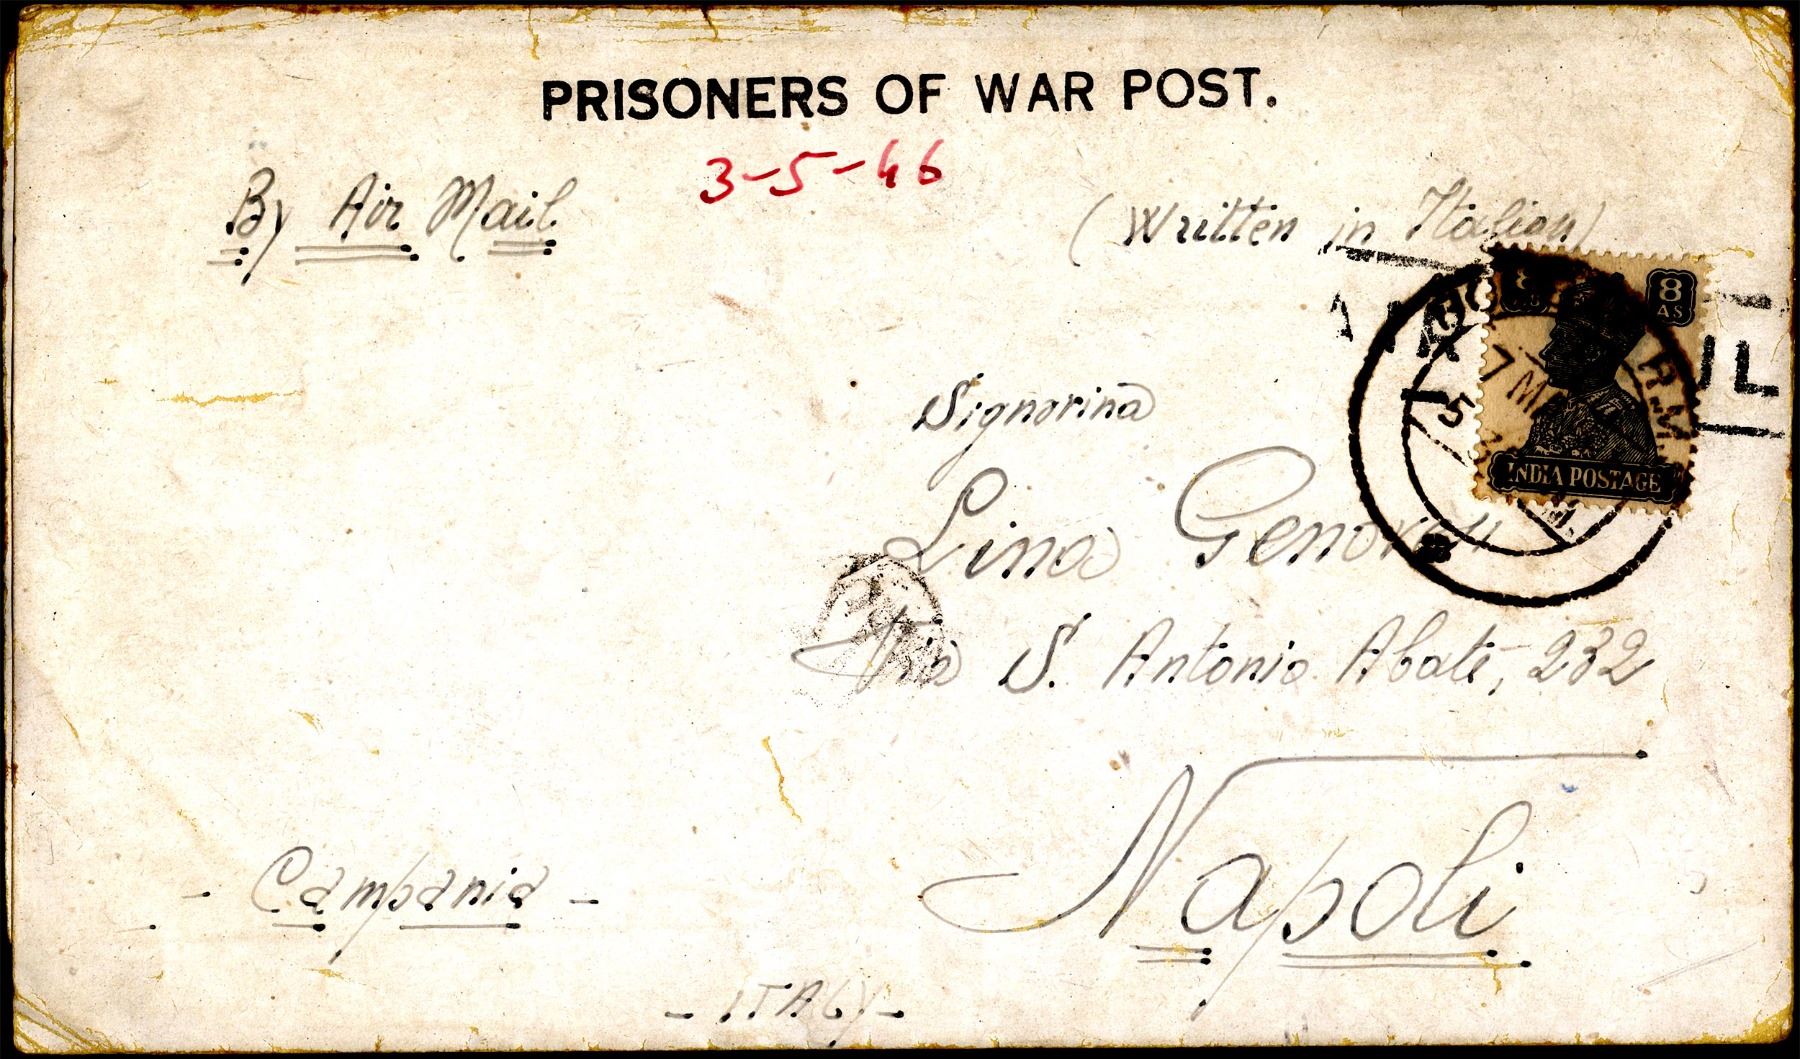 PRISONERS OF WAR POST.
3-5-46
By Air Mail
(Written in Italian)
8
8
AS
AIR
IL
7 MA
5
INDIA POSTAGE
Signorina
Lina
Via S. Antonio Abate, 232
Napoli
- Campania -
- ITALY -